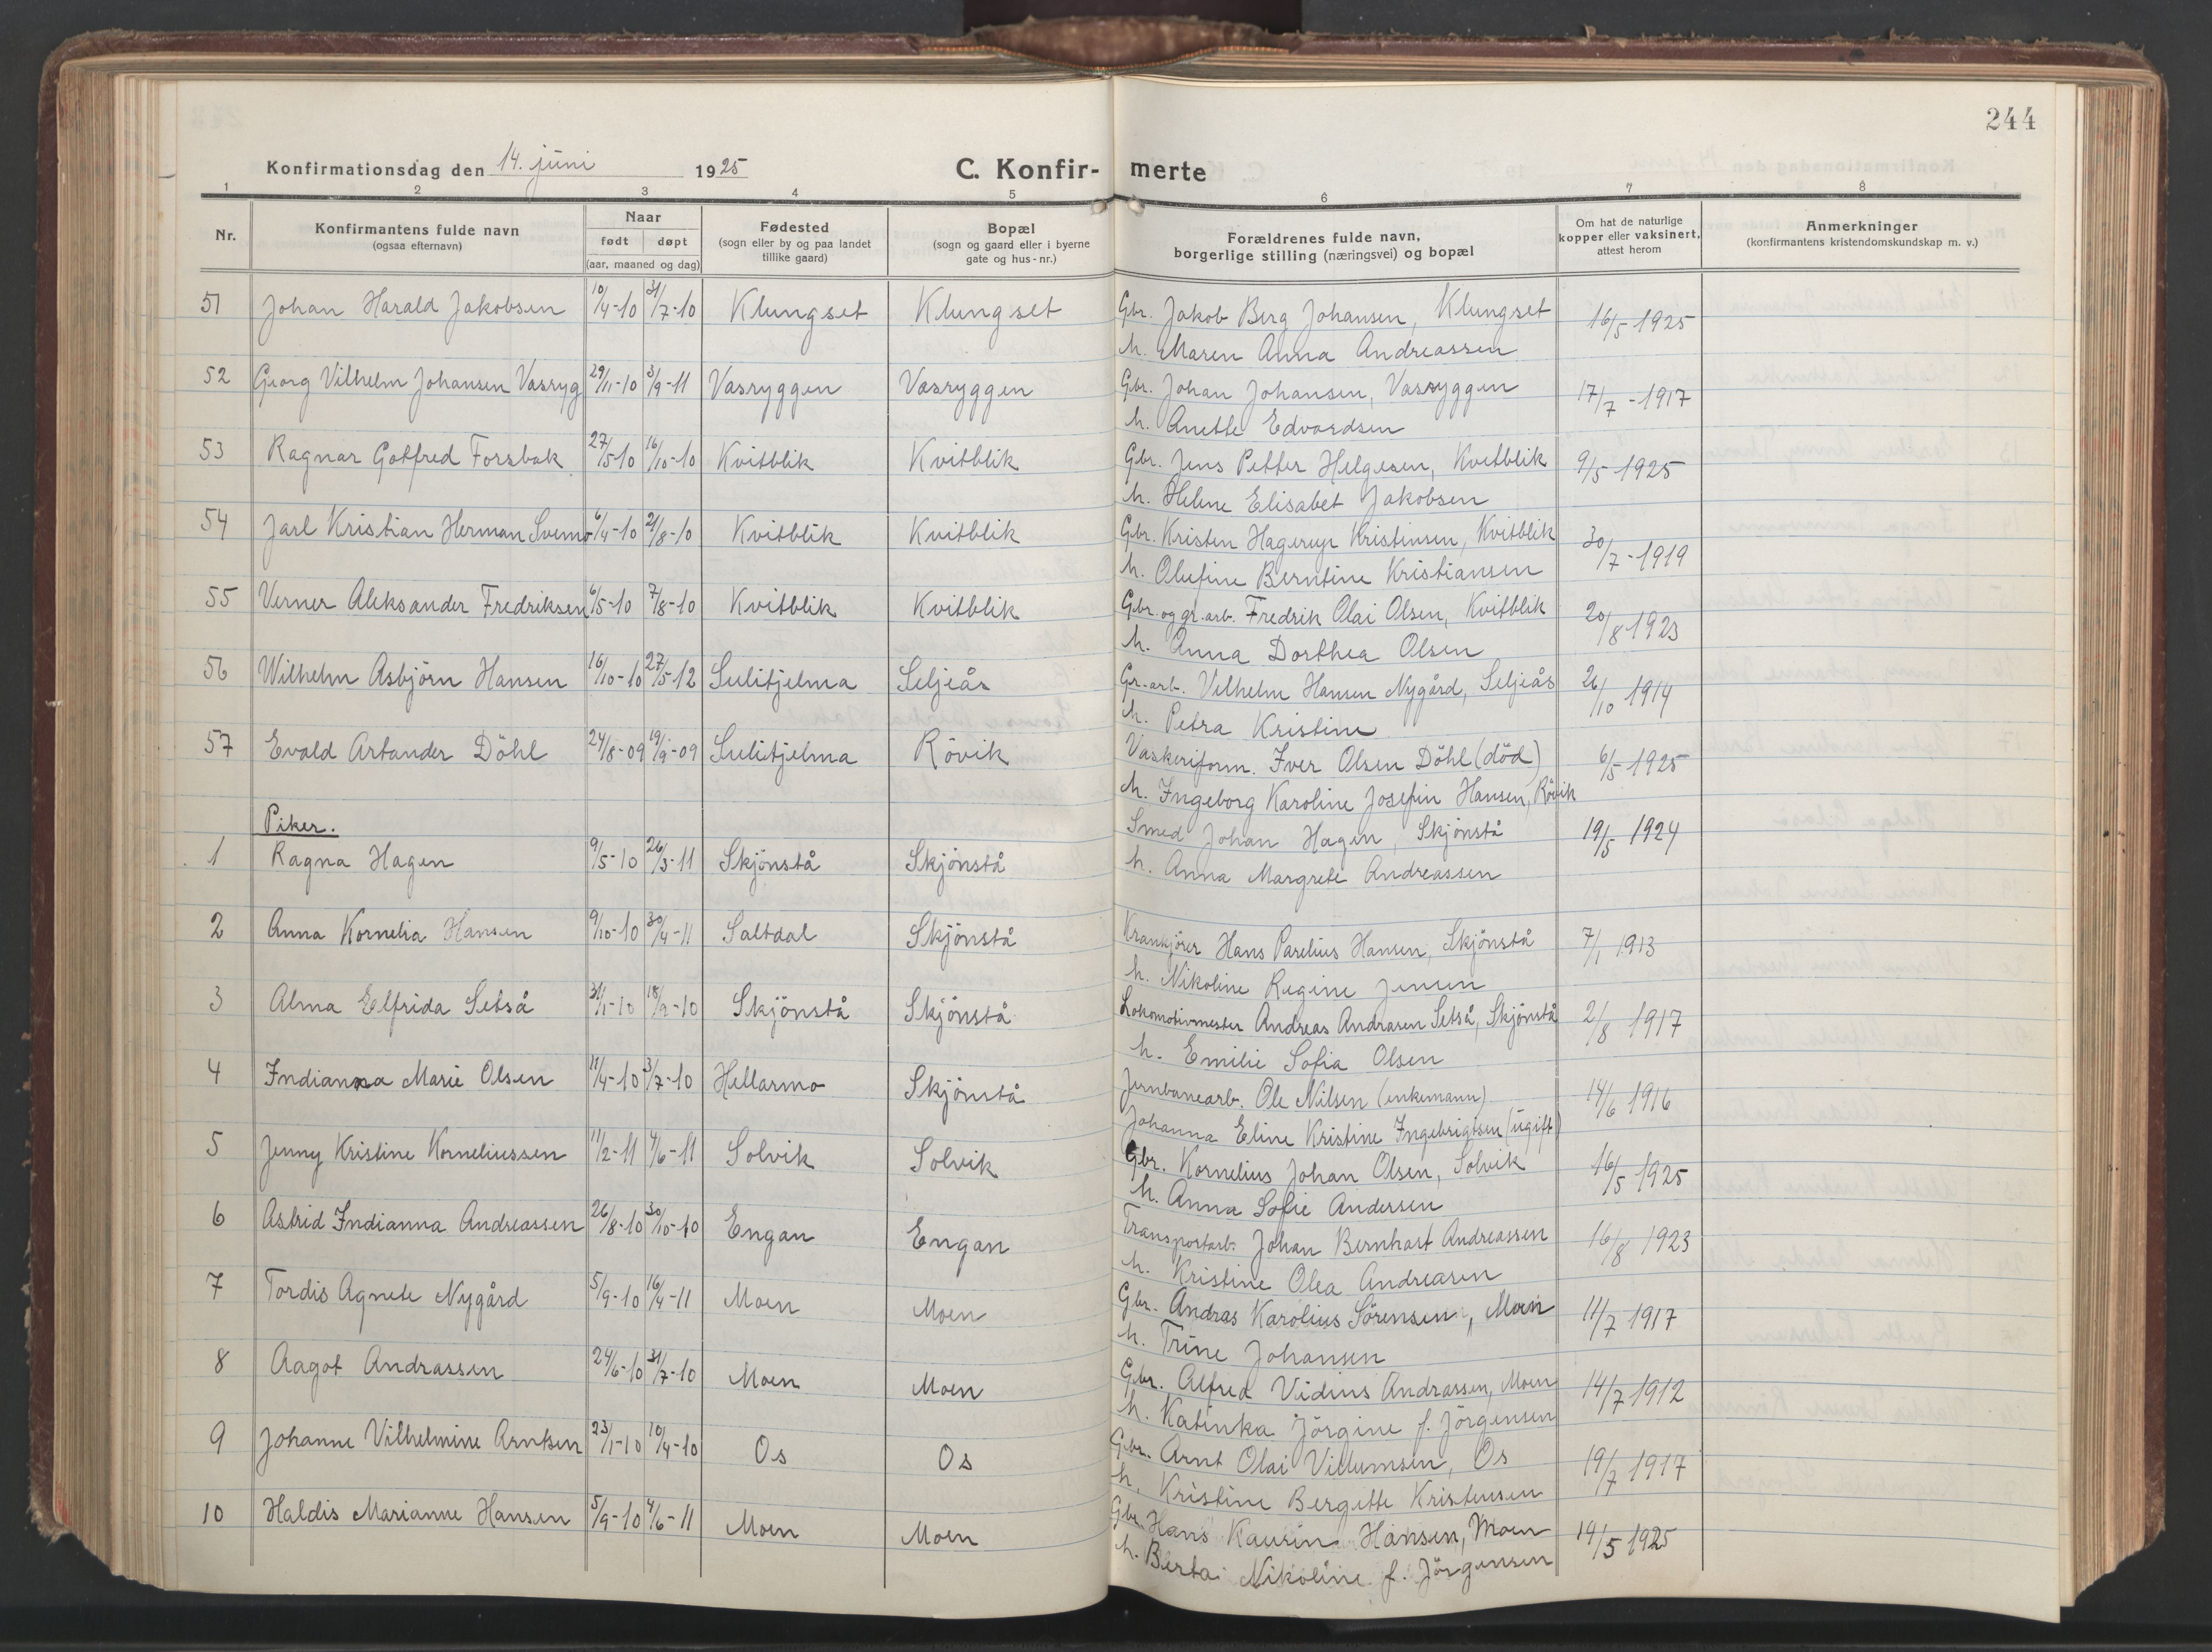 244
Konfirmationsdag den 14. juni 1925 C. Konfir- merte
1 2 3 4 5 6 7 8
Nr. Konfirmantens fulde navn (ogsaa efternavn) Naar født døpt (aar, maaned og dag) Fødested (sogn eller by og paa landet tillike gaard) Bopæl (sogn og gaard eller i byerne gate og hus-nr.) Forældrenes fulde navn, borgerlige stilling (næringsvei) og bopæl Om hat de naturlige kopper eller vaksinert, attest herom Anmerkninger (konfirmantens kristendomskundskap m. v.)
51 Johan Harald Jakobsen 10/4-10 31/7-10 Klungset Klungset Gbr. Jakob Berg Johansen, Klungset 16/5 1925
h. Maren Anna Andreassen
52 Georg Vilhelm Johansen Vasryg 29/11-10 3/9-11 Vasryggen Vasryggen Gbr. Johan Johansen, Vasryggen 17/7-1917
h. Anette Edvardsen
53 Ragnar Gotfred Forsbak 27/5-10 16/10-10 Kvitblik Kvitblik Gbr. Jens Petter Helgesen, Kvitblik 9/5-1925
h. Helene Elisabet Jakobsen
54 Jarl Kristian Herman Svemo 6/4-10 21/8-10 Kvitblik Kvitblik Gbr. Kristen Hagerup Kristensen, Kvitblik 30/7-1919
h. Olufine Berntine Kristiansen
55 Verner Aleksander Fredriksen 6/5-10 7/8-10 Kvitblik Kvitblik Gbr. og gr.arb. Fredrik Olai Olsen, Kvitblik 20/8 1923
h. Anna Dorthea Olsen
56 Wilhelm Asbjörn Hansen 16/10-10 27/5-12 Sulitjelma Seljeås Gr.-arb. Vilhelm Hansen Nygård, Seljeås 26/10 1914
h. Petra Kristine
57 Evald Artander Döhl 24/8-09 19/9-09 Sulitjelma Rövik Vaskeriform. Iver Olsen Döhl (död) 6/5-1925
h. Ingeborg Karoline Josefin Hansen, Rövik
Piker.
1 Ragna Hagen 9/5-10 26/3-11 Skjönstå Skjönstå Smed Johan Hagen, Skjönstå 19/5 1924
h. Anna Margrete Andreassen
2 Anna Kornelia Hansen 9/10-10 30/4-11 Saltdal Skjönstå Krankjörer Hans Parelius Hansen, Skjönstå 7/1 1913
h. Nikoline Regine Jensen
3 Alma Elfrida Setså 31/1-10 18/9-10 Skjönstå Skjönstå Lokomotivmester Andreas Andrasen Setså, Skjönstå 2/8 1917
h. Emilie Sofia Olsen
4 Indianna Marie Olsen 11/4-10 3/7-10 Hellarmo Skjönstå Jernbanearb. Ole Nilsen (enkemann) 14/6 1916
Johanna Eline Kristine Ingebrigtsen (ugift)
5 Jenny Kristine Korneliussen 11/2-11 4/6-11 Solvik Solvik Gbr. Kornelius Johan Olsen, Solvik 16/5 1925
h. Anna Sofie Andersen
6 Astrid Indianna Andreassen 26/8-10 30/10-10 Engan Engan Transportarb. Johan Bernhart Andreassen 16/8 1923
h. Kristine Olea Andreasen
7 Tordis Agnete Nygård 5/9-10 16/4-11 Moen Moen Gbr. Andras Karolius Sörensen, Moen 11/7 1917
h. Trine Johansen
8 Aagot Andrassen 24/6-10 31/7-10 Moen Moen Gbr. Alfred Vidius Andrassen, Moen 14/7 1912
h. Katinka Jörgine f. Jörgensen
9 Johanne Vilhelmine Arntsen 23/1-10 10/4-10 Os Os Gbr. Arnt Olai Villumsen, Os 19/7 1917
h. Kristine Bergitte Kristensen
10 Haldis Marianne Hansen 5/9-10 4/6-11 Moen Moen Gbr. Hans Kaurin Hansen, Moen 19/5 1925
h. Berta Nikoline f. Jörgensen